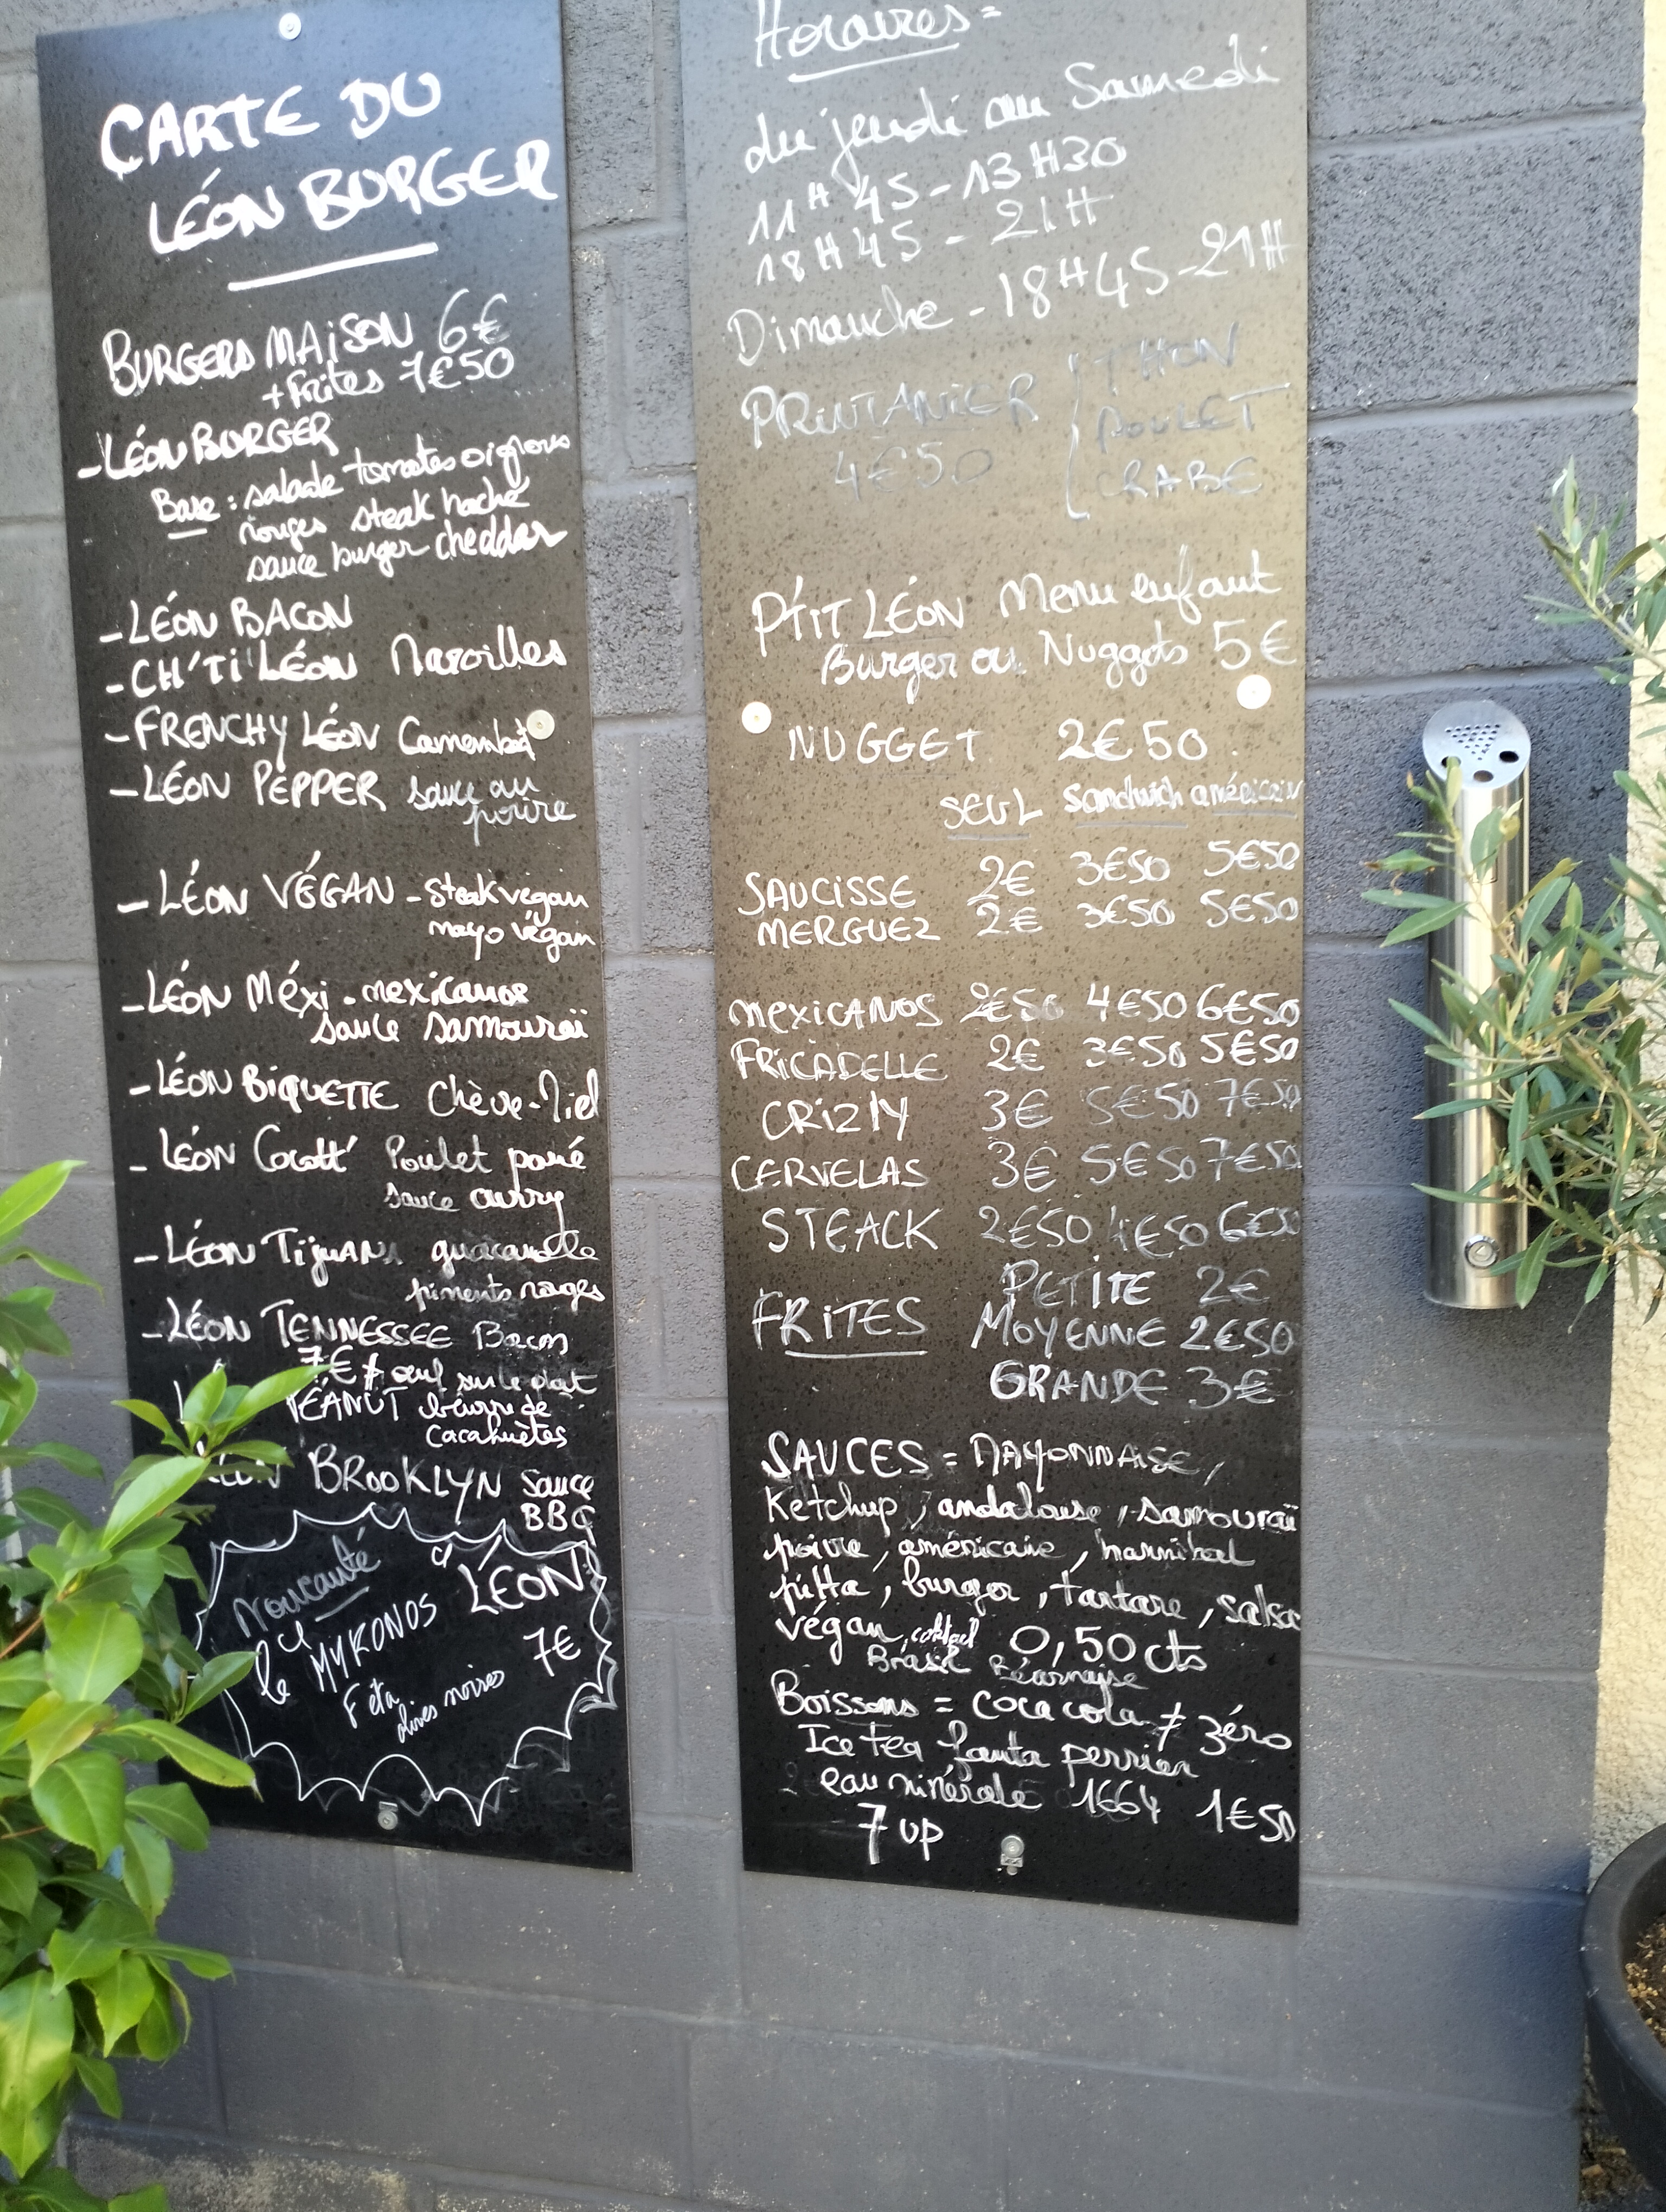 CARTE DU
LÉON BURGER
BURGERS MAISON 6€
+ Frites 7€50
- LÉON BURGER
Base : salade tomates oignons
rouges steak haché
sauce burger cheddar
- LÉON BACON
- CH'TI LÉON Maroilles
- FRENCHY LÉON Camembert
- LÉON PEPPER sauce au
poivre
- LÉON VÉGAN - steak végan
mayo végan
- LÉON Méxi - mexicanos
sauce samouraï
- LÉON BIQUETTE Chèvre-Miel
- LÉON Cocott' Poulet pané
sauce curry
- LÉON Tijuana guacamole
piments rouges
- LÉON TENNESSEE Bacon
7€ + œuf sur le plat
PÉANUT beurre de
Cacahuètes
LÉON BROOKLYN sauce
BBQ
Nouveauté
le MYKONOS d'LÉON
Feta 7€
olives noires
Horaires =
du jeudi au Samedi
11H45 - 13H30
18H45 - 21H
Dimanche - 18H45 - 21H
PRINTANIER THON
4€50 POULET
CRABE
P'TIT LÉON Menu enfant
Burger ou Nuggets 5€
NUGGET 2€50
SEUL Sandwich américain
SAUCISSE 2€ 3€50 5€50
MERGUEZ 2€ 3€50 5€50
MEXICANOS 2€50 4€50 6€50
FRICADELLE 2€ 3€50 5€50
CRIZLY 3€ 5€50 7€50
CERVELAS 3€ 5€50 7€50
STEACK 2€50 4€50 6€50
PETITE 2€
FRITES MOYENNE 2€50
GRANDE 3€
SAUCES = MAYONNAISE,
Ketchup, andalouse, samouraï
poivre, américaine, hannibal
pitta, burger, tartare, salsa
végan, cocktail 0,50 cts
Brasil Béarnaise
Boissons = coca cola ≠ zéro
Ice tea fanta perrier
eau minérale 1664 1€50
7 UP